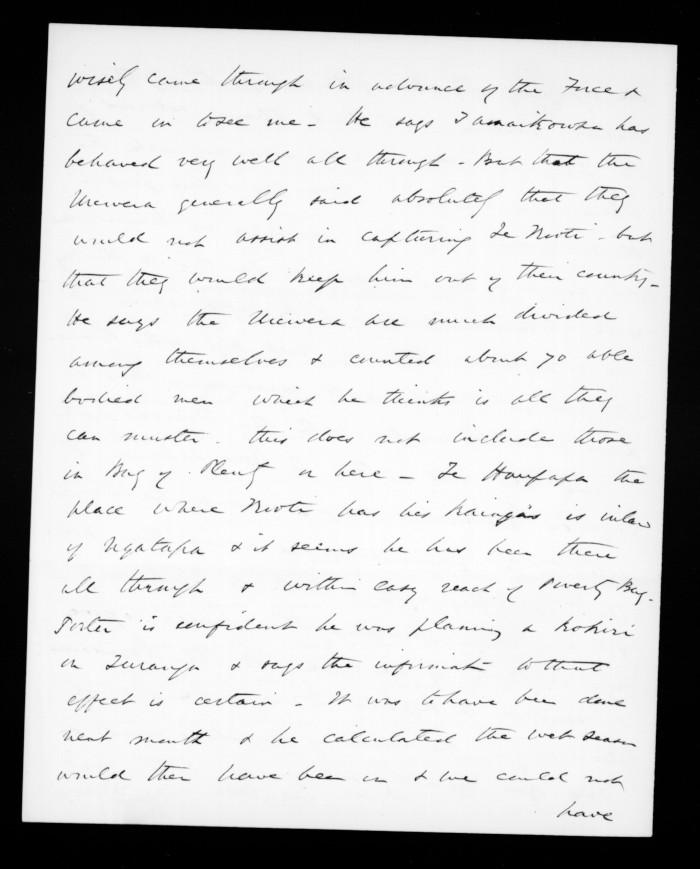 wisely came through in advance of the Force &
came in to see me - He says Tamaikowha has
behaved very well all through - But that the
Urewera generally said absolutely that they
would not assist in capturing Te Kooti - but
that they would keep him out of their country -
He says the Urewera are much divided
among themselves & counted about 70 able
bodied men which he thinks is all they
can muster. this does not include those
in Bay of Plenty or here - Te Houpapa the
place where Kooti has his kaingas is inland
of Ngatapa & it seems he has been there
all through & within easy reach of Poverty Bay -
Porter is confident he was planning a kokiri
on Turanga & says the informatn to that
effect is certain - It was to have been done
next month & he calculated the wet season
would then have been in & we could not
have